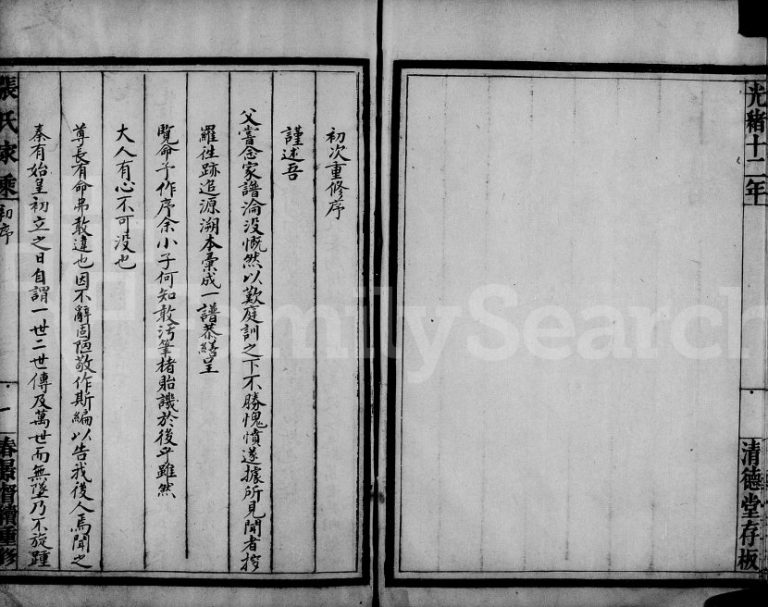 光緒十二年
清德堂存板
初次重修序
謹述吾
父嘗念家譜淪沒慨然以歎庭訓之下不勝愧憤遂據所見聞者按
羅徃跡追源溯本彙成一譜恭繕呈
覽命子作序余小子何知敢污筆楮貽譏於後乎雖然
大人有心不可沒也
尊長有命弗敢違也因不辭固陋敬作斯編以告我後人焉聞之
秦有始皇初立之日自謂一世二世傳及萬世而無墜乃不旋踵
張氏家乘
初序
一
重修
FamilySearch